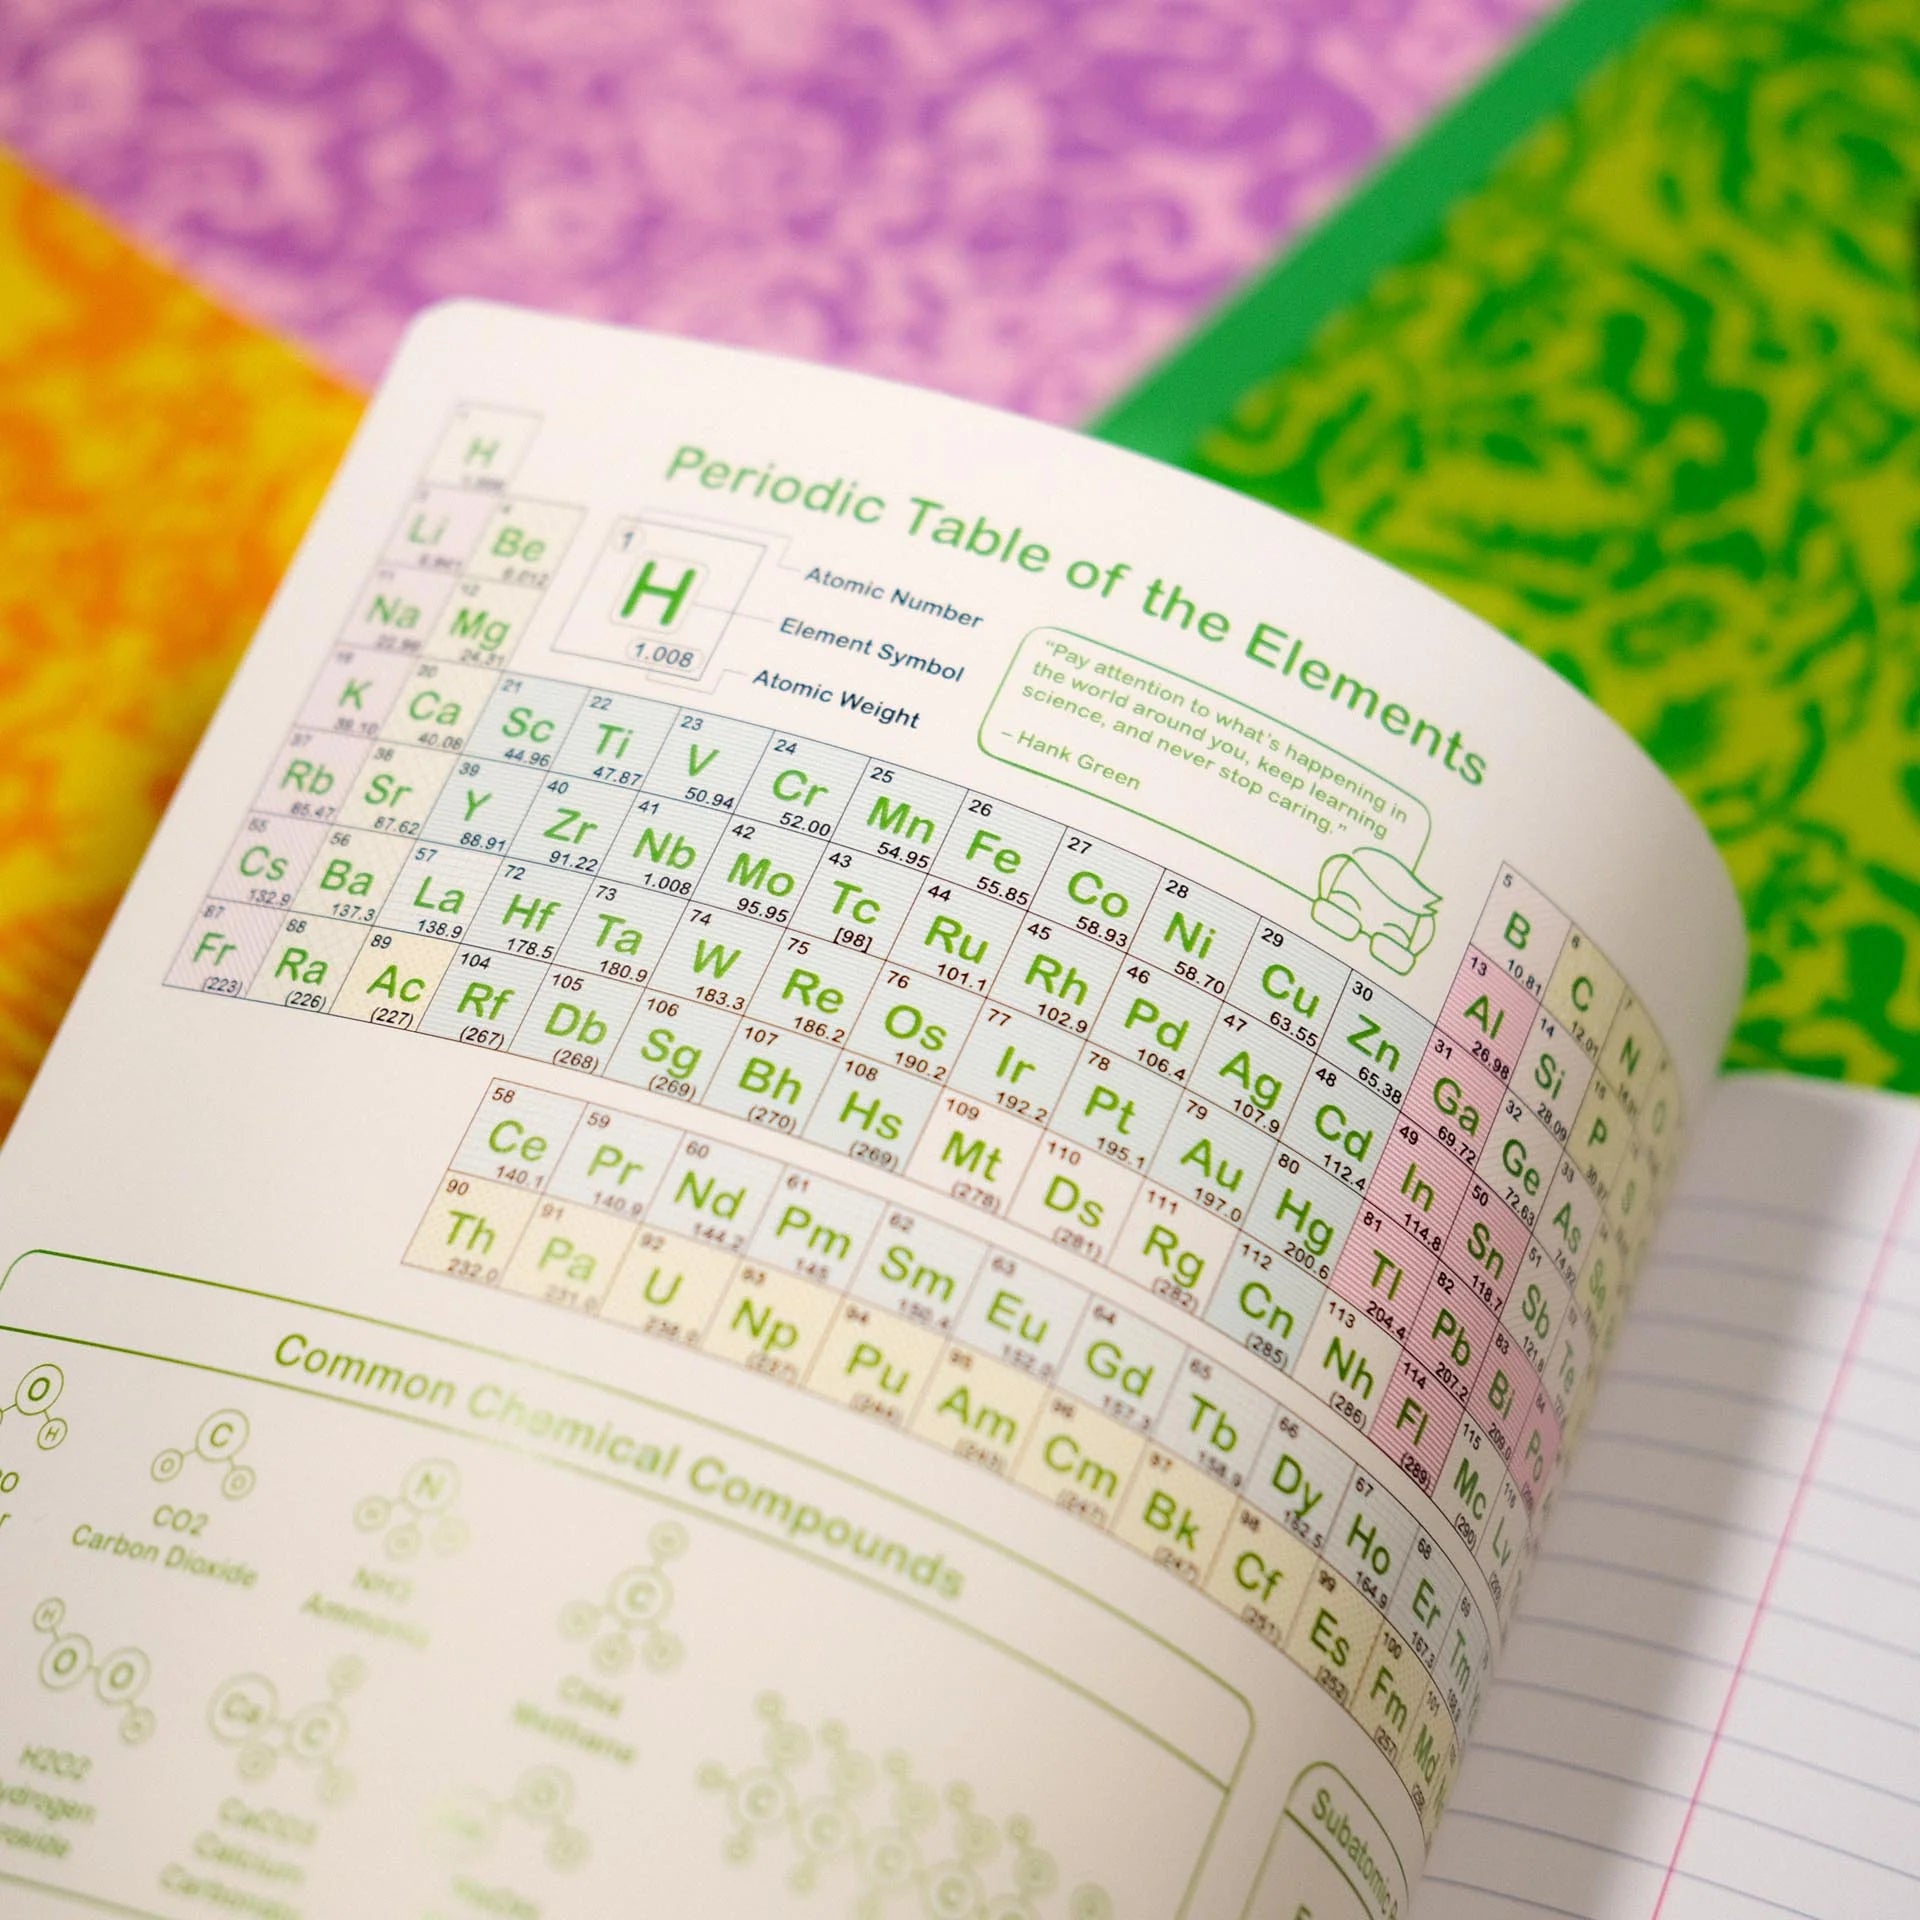 Periodic Table of the Elements
H
1
H
1.008
Atomic Number
Element Symbol
Atomic Weight
"Pay attention to what's happening in
the world around you, keep learning
science, and never stop caring."
– Hank Green
Li Be
Na Mg
24.31
K Ca Sc Ti V Cr Mn Fe Co Ni Cu Zn Ga Ge As Se
21 22 23 24 25 26 27 28 29 30 31 32 33
39.10 40.08 44.96 47.87 50.94 52.00 54.95 55.85 58.93 58.70 63.55 65.38 69.72 72.63 74.92
5 6 7
B C N O
10.81 12.01
13 14 15
Al Si P S
26.98 28.09 30.97
37 38 39 40 41 42 43 44 45 46 47 48 49 50 51
Rb Sr Y Zr Nb Mo Tc Ru Rh Pd Ag Cd In Sn Sb Te
85.47 87.62 88.91 91.22 1.008 95.95 [98] 101.1 102.9 106.4 107.9 112.4 114.8 118.7 121.8
55 56 57 72 73 74 75 76 77 78 79 80 81 82 83 84
Cs Ba La Hf Ta W Re Os Ir Pt Au Hg Tl Pb Bi Po
132.9 137.3 138.9 178.5 180.9 183.3 186.2 190.2 192.2 195.1 197.0 200.6 204.4 207.2 209.0
87 88 89 104 105 106 107 108 109 110 111 112 113 114 115 116
Fr Ra Ac Rf Db Sg Bh Hs Mt Ds Rg Cn Nh Fl Mc Lv
(223) (226) (227) (267) (268) (269) (270) (269) (278) (281) (282) (285) (286) (289) (290)
58 59 60 61 62 63 64 65 66 67 68 69
Ce Pr Nd Pm Sm Eu Gd Tb Dy Ho Er Tm
140.1 140.9 144.2 145 150.4 152.0 157.3 158.9 162.5 164.9 167.3
90 91 92 93 94 95 96 97 98 99 100 101
Th Pa U Np Pu Am Cm Bk Cf Es Fm Md
232.0 231.0 238.0 (237) (244) (243) (247) (247) (251) (252) (257)
Common Chemical Compounds
O
H
C
O O
CO2
Carbon Dioxide
N
NH3
Ammonia
C
CH4
H
O O
H2O2
Ca C
CaCO3
Calcium
Subatomic